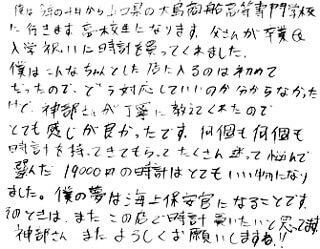 僕は 4月から山口県の大島商船高等専門学校
に行きます。高校生になります。父さんが卒業&
入学祝いに時計を買ってくれました。
僕はこんなちゃんとした店に入るのは初めて
だったので、どう対応していいのか分からなかった
けど、神部さんが丁寧に教えてくれたので
とても感じが良かったです。何個も何個も
時計を持ってきてもらってたくさん迷って悩んで
選んだ 19000円の時計はとてもいい物になり
ました。僕の夢は海上保安官になることです。
そのときは、またこの店で時計買いたいと思ってます
神部さん またよろしくお願いしますね!